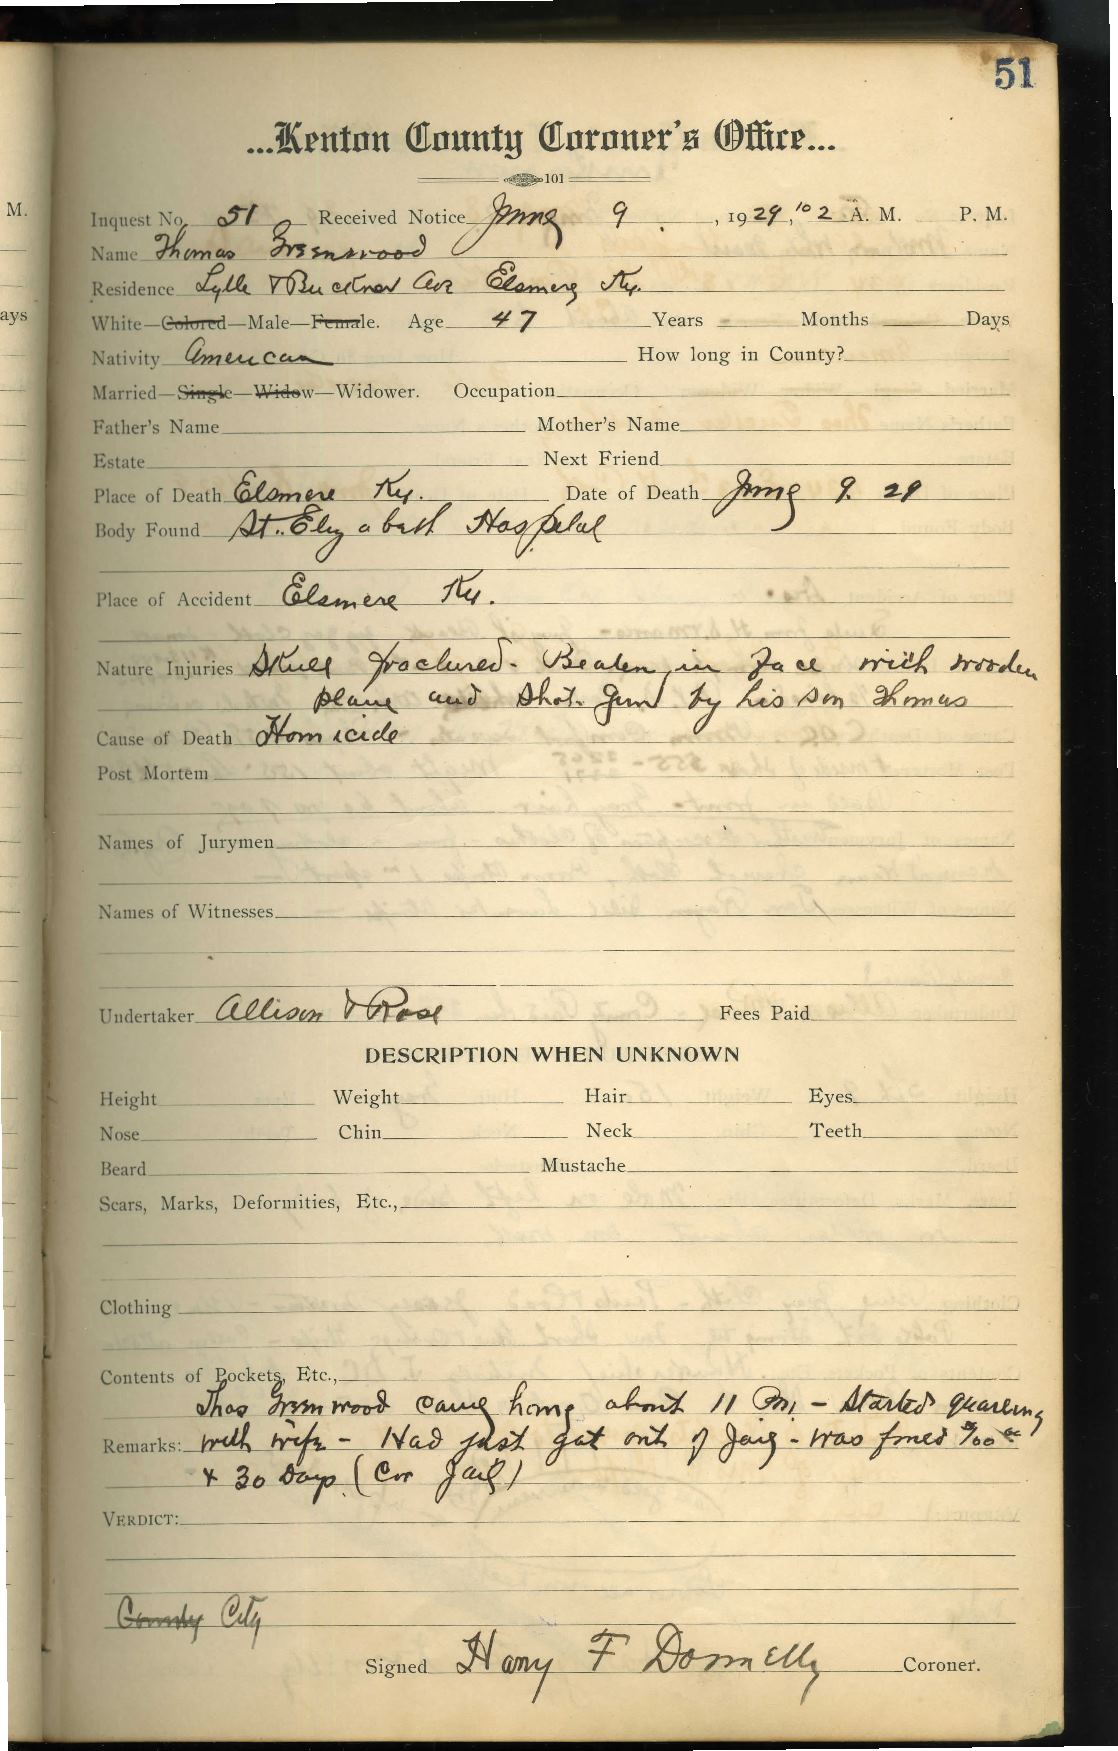 M.
ays
51
...Kenton County Coroner's Office...
101
Inquest No. 51 Received Notice June 9 , 1929, 10 2 A. M. P. M.
Name Thomas Greenwood
Residence Lytle & Buckner Ave Elsmere Ky.
White—Colored—Male—Female. Age 47 Years - Months Days
Nativity American How long in County?
Married—Single—Widow—Widower. Occupation
Father's Name Mother's Name
Estate Next Friend
Place of Death Elsmere Ky. Date of Death June 9. 29
Body Found St. Elizabeth Hospital
Place of Accident Elsmere Ky.
Nature Injuries Skull fractured - Beaten in face with wooden
plane and shot-gun by his son Thomas
Cause of Death Homicide
Post Mortem
Names of Jurymen
Names of Witnesses
Undertaker Allison & Rose Fees Paid
DESCRIPTION WHEN UNKNOWN
Height Weight Hair Eyes
Nose Chin Neck Teeth
Beard Mustache
Scars, Marks, Deformities, Etc.,
Clothing
Contents of Pockets, Etc.,
Thos Greenwood came home about 11 P.M. - Started quareling
Remarks: with wife - Had just got out of Jail - was fined $100 00
& 30 Days. (Cov Jail)
VERDICT:
County City
Signed Harry F Donnelly Coroner.